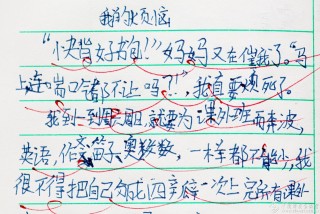 我的烦恼
“快背好书包!”妈妈又在催我了。“马
上连岗口都不让吗?!”,我真要烦死了。
我到一到周日,就要为课外班而奔波,
英语,作文,笛子,奥数,一样都不能少,我
恨不得把自己分成四瓣一次上完所有课外